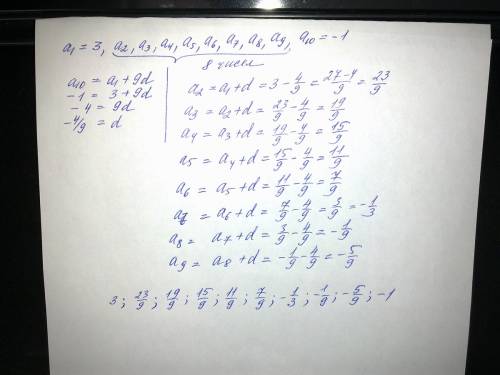 a₁ = 3, a₂, a₃, a₄, a₅, a₆, a₇, a₈, a₉, a₁₀ = -1
8 чисел
a₁₀ = a₁ + 9d
-1 = 3 + 9d
-4 = 9d
-4/9 = d
a₂ = a₁ + d = 3 - 4/9 = (27-4)/9 = 23/9
a₃ = a₂ + d = 23/9 - 4/9 = 19/9
a₄ = a₃ + d = 19/9 - 4/9 = 15/9
a₅ = a₄ + d = 15/9 - 4/9 = 11/9
a₆ = a₅ + d = 11/9 - 4/9 = 7/9
a₇ = a₆ + d = 7/9 - 4/9 = 3/9 = -1/3
a₈ = a₇ + d = 3/9 - 4/9 = -1/9
a₉ = a₈ + d = -1/9 - 4/9 = -5/9
3; 23/9; 19/9; 15/9; 11/9; 7/9; -1/3; -1/9; -5/9; -1